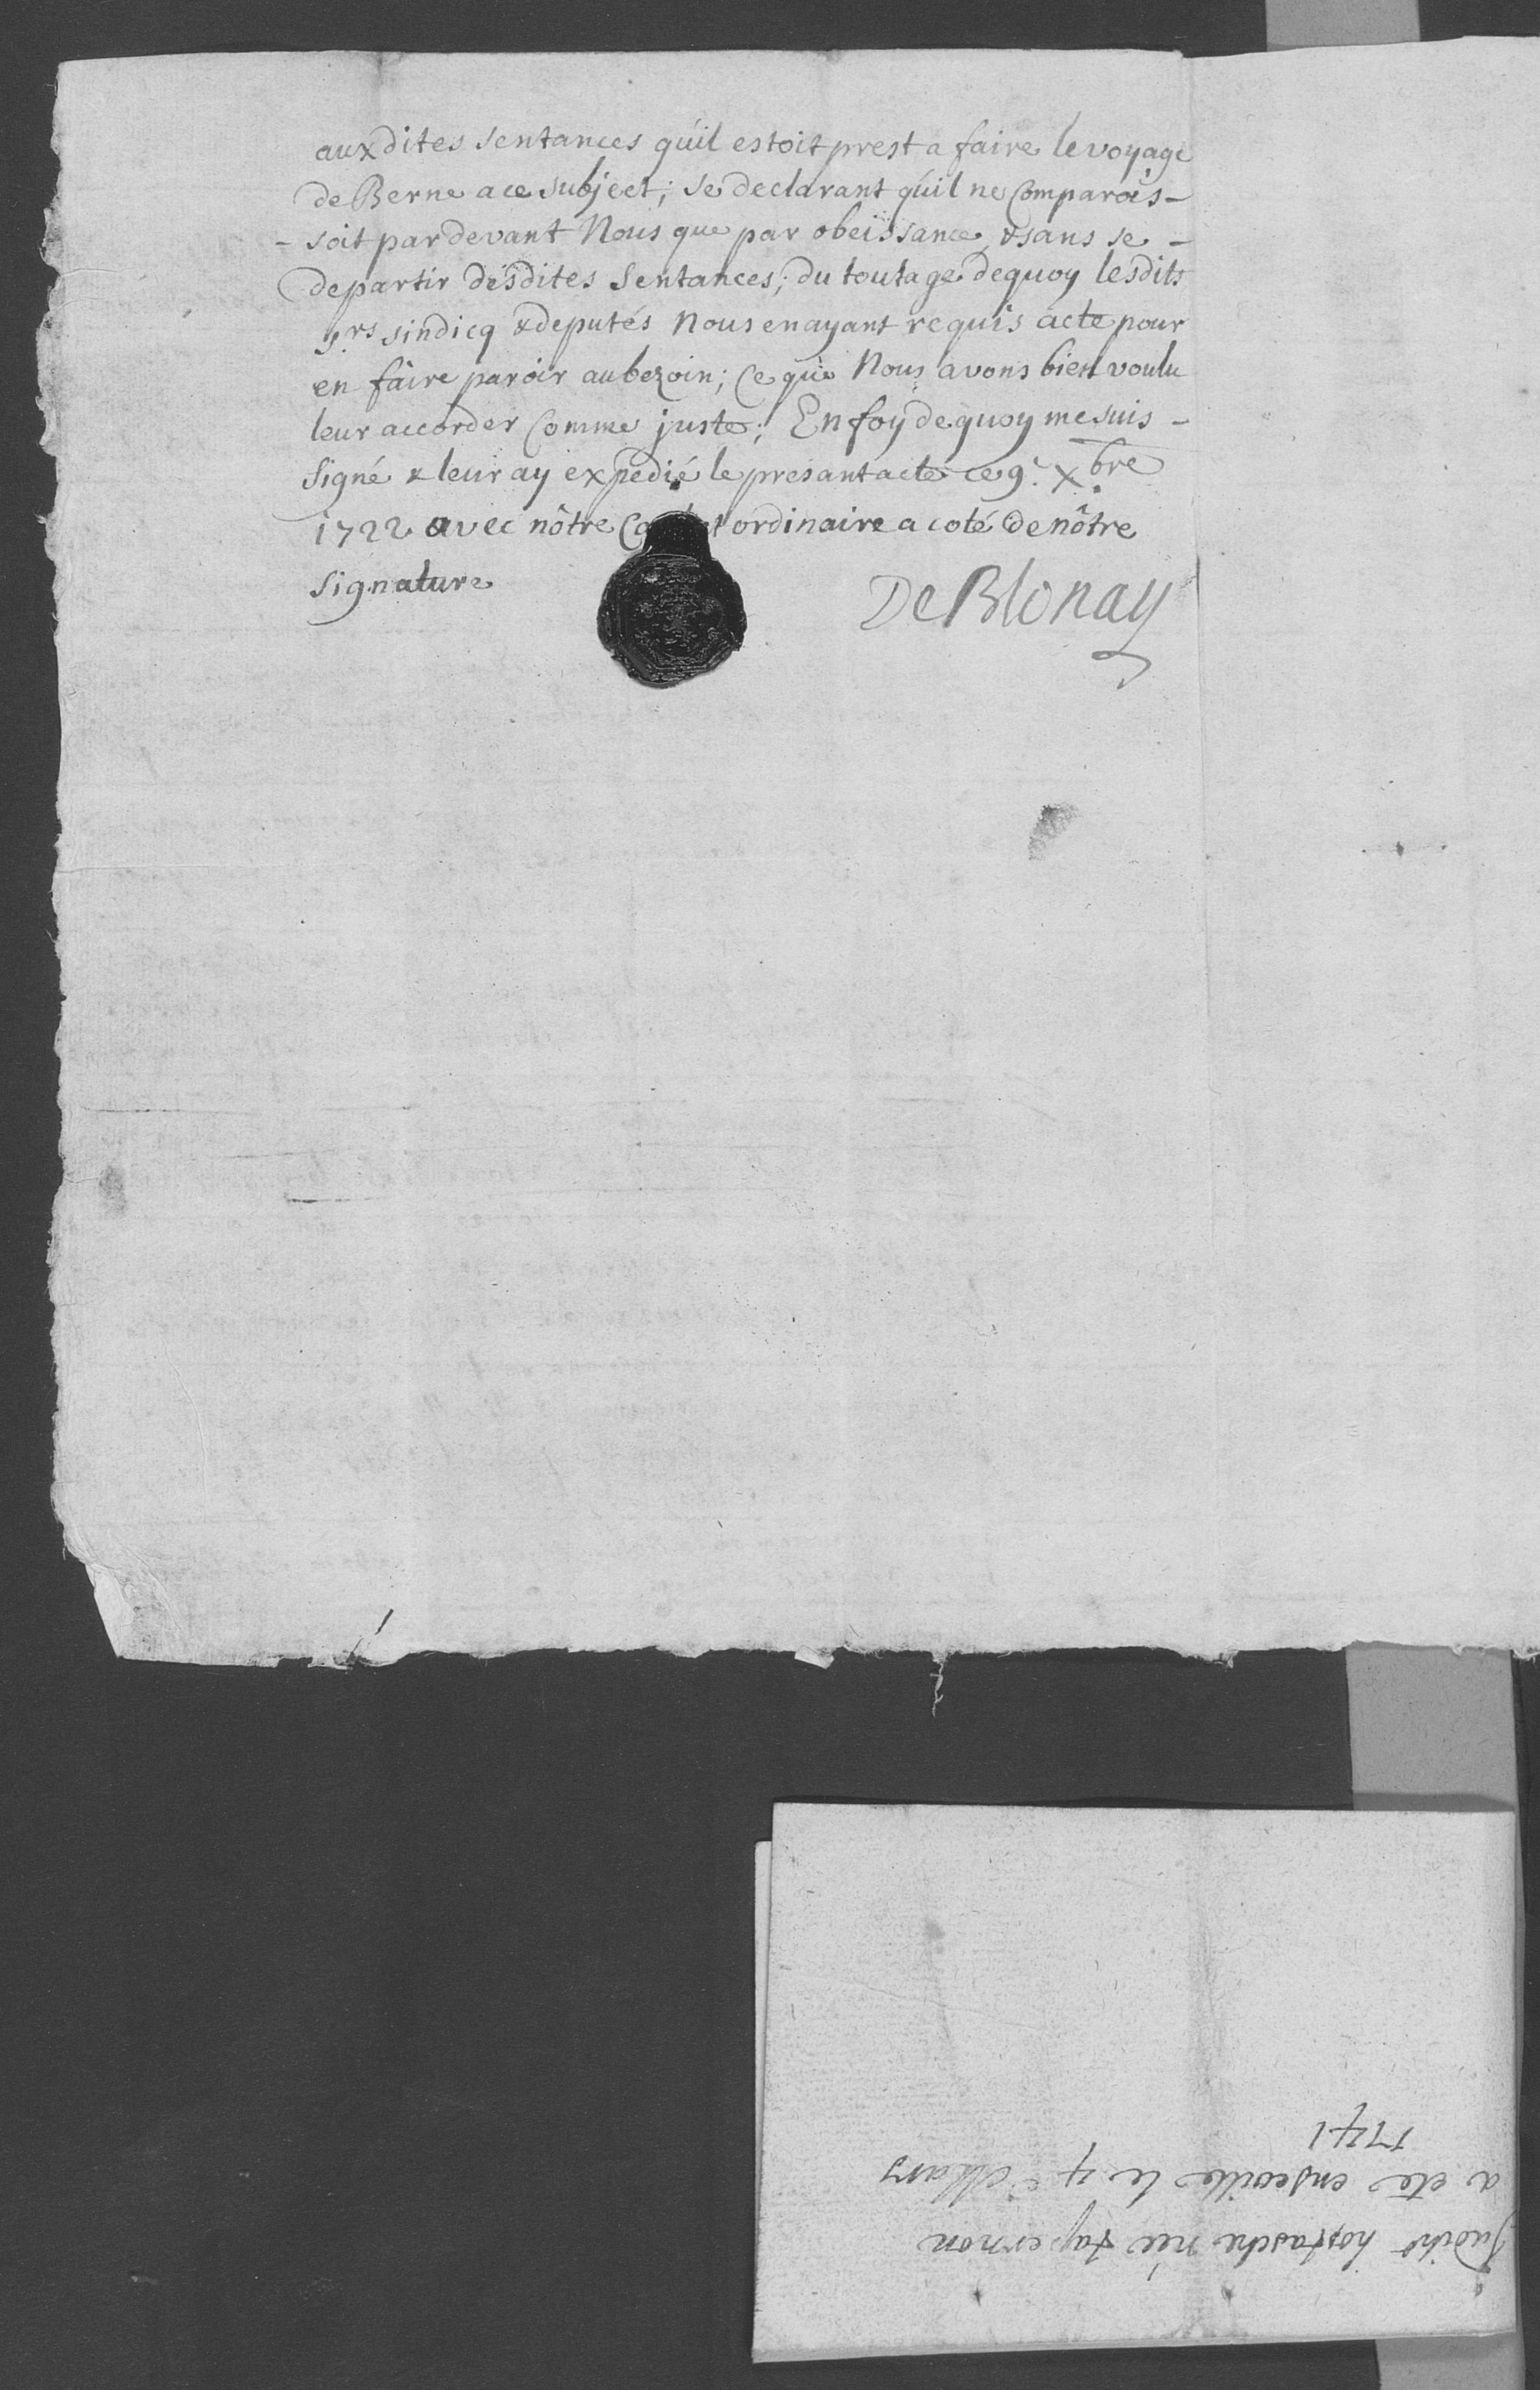 auxdites sentances qu'il estoit prest a faire le voyage
de Berne a ce subject; se declarant qu'il ne Comparois-
-soit par devant Nous que par obeissance, & sans se -
departir desdites Sentances; du toutage dequoy lesdits
s.rs sindicq & deputés Nous en ayant requis acte pour
en faire paroir au bezoin; Ce que Nous avons bien voulu
leur accorder Comme juste; En foy de quoy me suis -
signé & leur ay expedié le presant acte ce 9.e Xbre
1722 avec nôtre ordinaire a coté de nôtre
signature
De Blonay
Judiht née tapernon
a ete enseveille le 4e Mars
1741